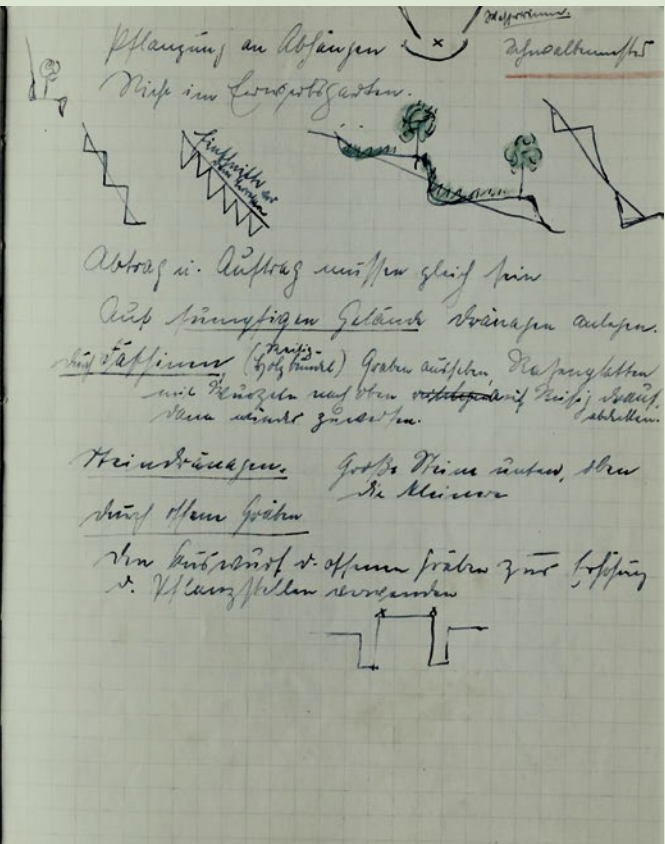 Wasserrinne.
Pflanzung an Abhängen
Schwalbennester
Nicht im Erwerbsgarten.
Einschnitte
Abtrag u. Auftrag müssen gleich sein
Auf sumpfigen Gelände Dränagen anlegen.
durch Faschinen (Reisig-
Holzbündel) Graben ausheben, Rasenplatten
mit Wurzeln nach oben auf Reisig drauf,
abdecken.
dann wieder zuwerfen.
Steindränagen. Große Steine unten, oben
die kleinere
durch offene Gräben
den Auswurf d. offenen Gräben zur Erhöhung
d. Pflanzstellen verwenden